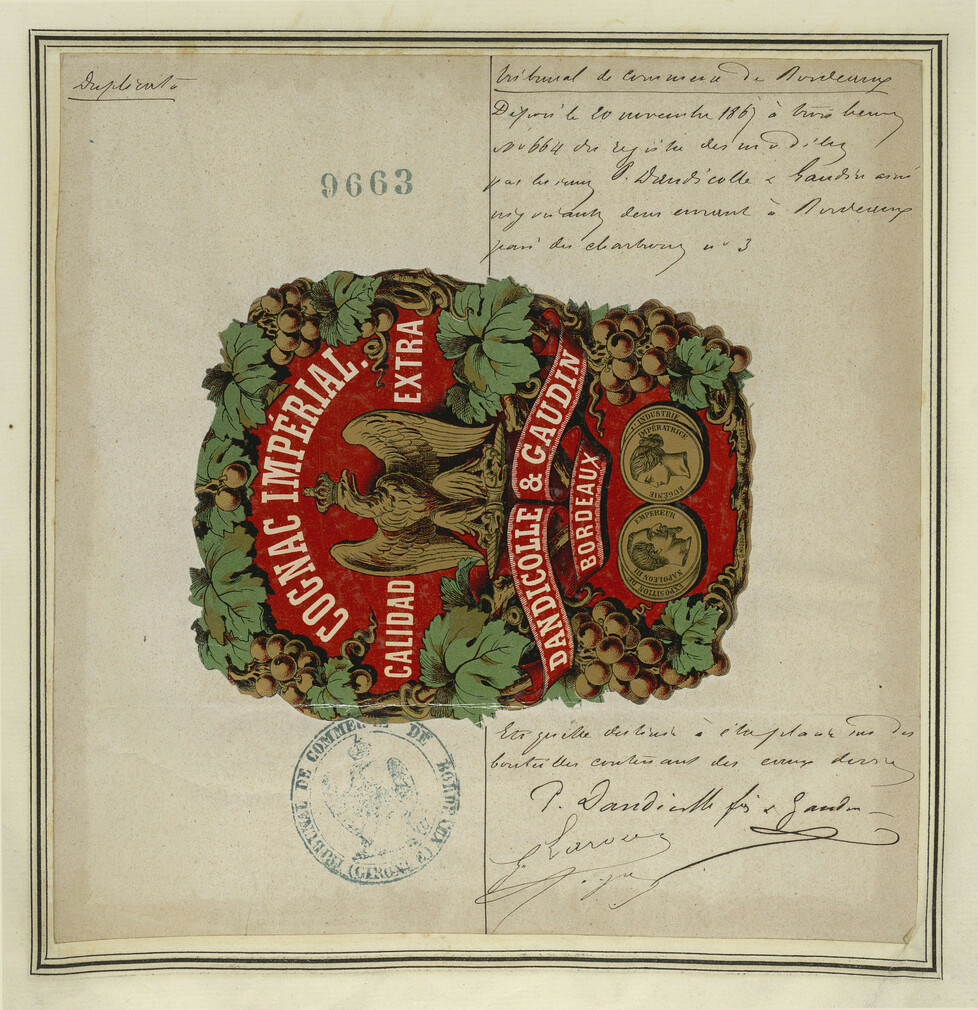 Duplicata
9663
Tribunal de Commerce de Bordeaux
Déposé le 20 novembre 1867 à trois heures
No 664 du registre des modèles
par les sieurs P. Dandicolle & Gaudin ainé
négociants demeurant à Bordeaux
pavé des chartrons no 3
COGNAC IMPÉRIAL.
CALIDAD EXTRA
DANDICOLLE & GAUDIN
BORDEAUX
EXPOSITION DE L'INDUSTRIE
NAPOLEON III EMPEREUR
EUGÉNIE IMPÉRATRICE
Etiquette destinée à être placée sur des
bouteilles contenant des eaux de vie
P. Dandicolle fils & Gaudin
TRIBUNAL DE COMMERCE DE BORDEAUX
(GIRONDE)